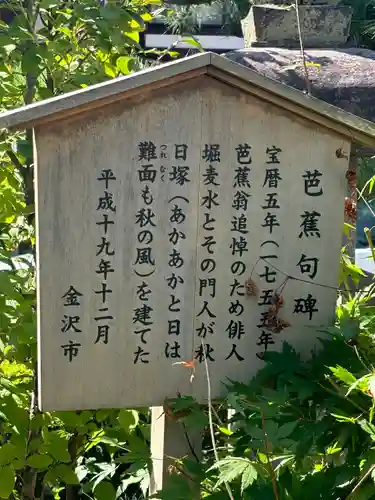 芭蕉句碑
宝暦五年(一七五五年)
芭蕉翁追悼のため俳人
堀麦水とその門人が秋
日塚(あかあかと日は
つれなく
難面も秋の風)を建てた
平成十九年十二月
金沢市